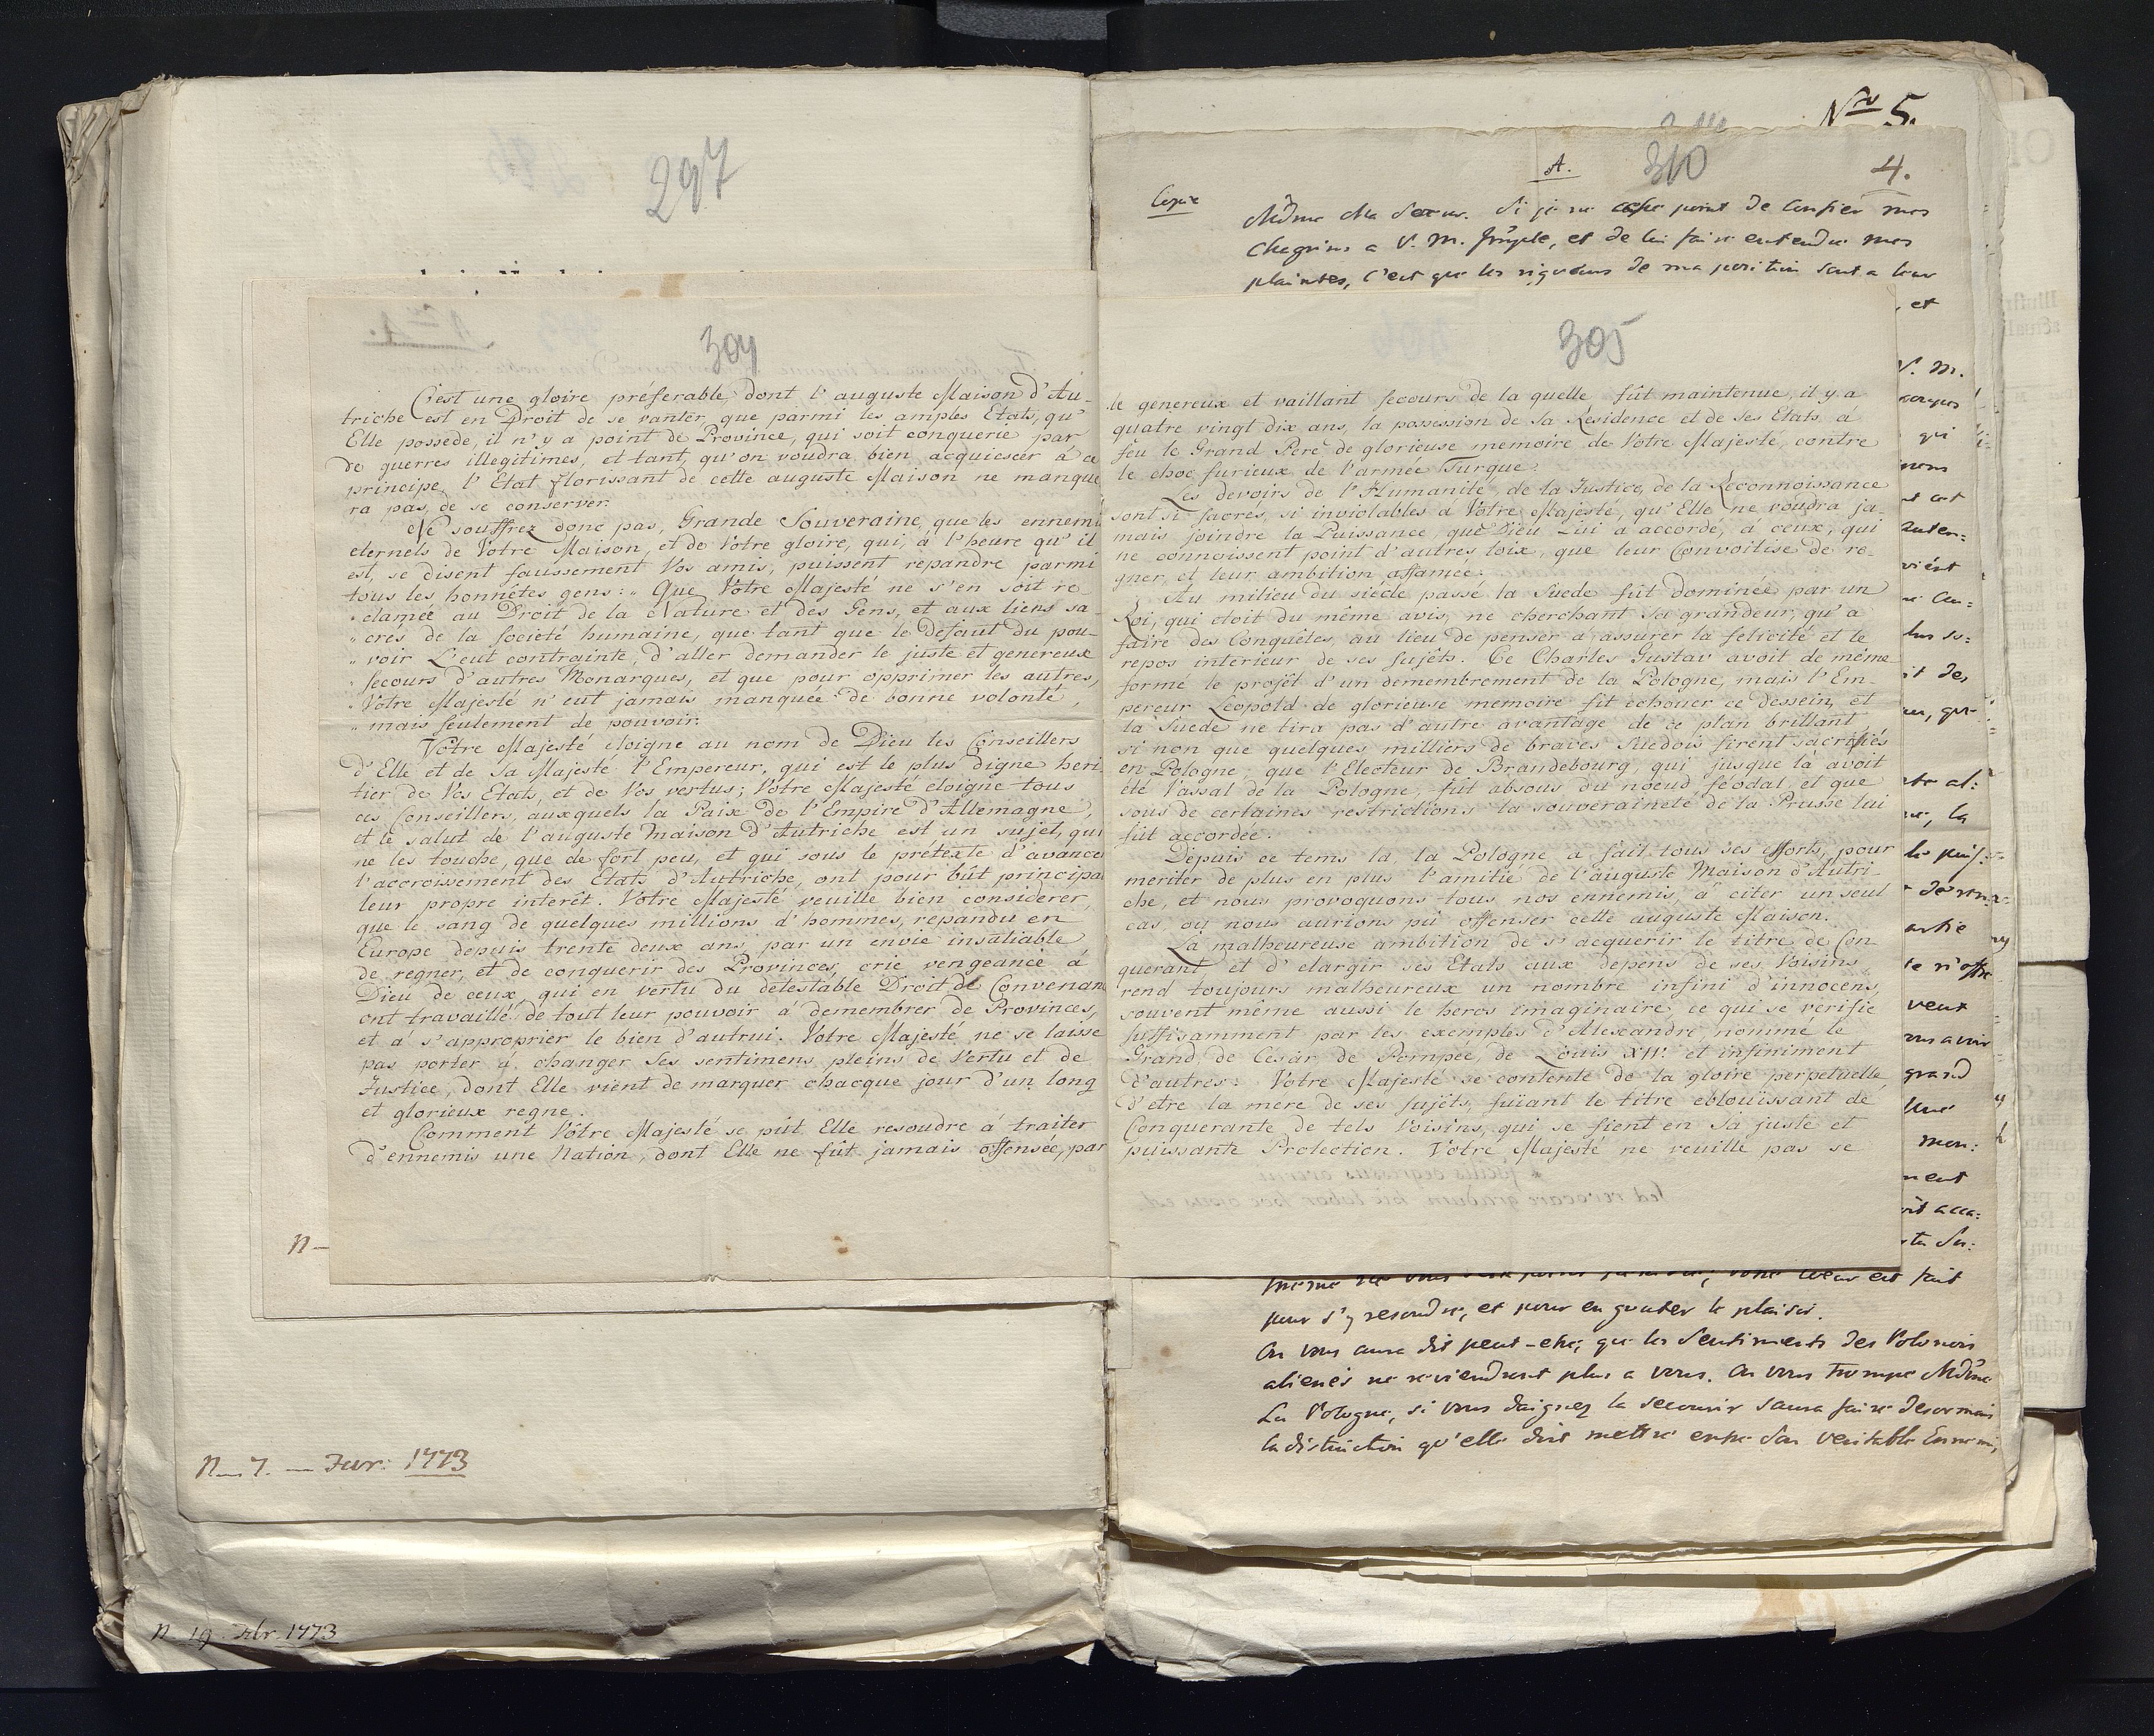 297
N 7. Fevr: 1773
N 19. Febr. 1773
304
C'est une gloire préferable dont l'auguste Maison d'Au-
triche est en Droit de se vanter, que parmi les amples Etats, qu'
Elle possede, il n'y a point de Province, qui soit conquerie par
de guerres illegitimes, et tant, qu'on voudra bien acquiescer á ce
principe, l'Etat florissant de cette auguste Maison ne manque
ra pas, de se conserver.
Ne souffrez donc pas, Grande Souveraine, que les ennemi
eternels de Votre Maison, et de Votre gloire, qui, à l'heure qu'il
est, se disent faussement Vos amis, puissent repandre parmi
tous les honnêtes gens: „ Que Votre Majesté ne s'en soit re
„ clamée au Droit de la Nature et des Gens, et aux liens sa-
„ crés de la societé humaine, que tant que le defaut du pou-
„ voir L'eut contrainte, d'aller demander le juste et genereux
„ secours d'autres Monarques, et que pour opprimer les autres,
„ Votre Majesté n'eut jamais manquée de bonne volonté,
„ mais seulement de pouvoir:
Votre Majesté eloigne au nom de Dieu les Conseillers
d'Elle et de Sa Majesté l'Empereur, qui est le plus digne heri
tier de Vos Etats, et de Vos vertus; Votre Majesté eloigne tous
ces Conseillers, auxquels la Paix de l'Empire d'Allemagne,
et le salut de l'auguste Maison d'Autriche est un sujet, qui
ne les touche, que de fort peu, et qui sous le prétexte d'avance
l'accroissement des Etats d'Autriche, ont pour but principa
leur propre interêt. Votre Majesté veuille bien considerer,
que le sang de quelques millions d'hommes, repandu en
Europe depuis trente deux ans, par un envie insatiable
de regner, et de conquerir des Provinces, crie vengeance á
Dieu de ceux, qui en vertu du detestable Droit de Convenan
ont travaillé de tout leur pouvoir á demembrer de Provinces,
et á s'approprier le bien d'autrui. Votre Majesté ne se laisse
pas porter á changer Ses sentimens pleins de Vertu et de
Justice, dont Elle vient de marquer chacque jour d'un long
et glorieux regne.
Comment Vôtre Majesté se pût Elle resoudre á traiter
d'ennemis une Nation, dont Elle ne fût jamais offensée, par
305
le genereux et vaillant secours de la quelle fût maintenue, il y a
quatre vingt dix ans, la possession de sa Residence et de ses Etats á
feu le Grand Pere de glorieuse memoire de Votre Majesté, contre
le choc furieux de l'armée Turque.
Les devoirs de l'Humanité, de la Justice, de la Reconnoissance
sont si sacrés, si inviolables a Votre Majesté, qu'Elle ne voudra ja-
mais joindre la Puissance, que Dieu Lui a accordé, á ceux, qui
ne connoissent point d'autres loix, que leur Convoitise de re-
gner, et leur ambition affamée.
Au milieu du siecle passé la Suede fût dominée par un
Roi, qui etoit du même avis, ne cherchant sa grandeur, qu'a
faire des Conquêtes, au lieu de penser a assurer la felicité et le
repos interieur de ses sujêts. Ce Charles Gustav avoit de même
formé le projêt d'un demembrement de la Pologne, mais l'Em-
pereur Leopold de glorieuse memoire fit echouer ce dessein, et
la Suede ne tira pas d'autre avantage de ce plan brillant,
si non que quelques milliers de braves Suedois firent sacrifiés
en Pologne, que l'Electeur de Brandebourg, qui jusque là avoit
eté Vassal de la Pologne, fut absous du noeud féodal, et que
sous de certaines restrictions la souveraineté de la Prusse lui
fût accordée.
Depuis ce tems la, la Pologne a fait tous ses efforts, pour
meriter de plus en plus l'amitié de l'auguste Maison d'Autri-
che, et nous provoquons tous nos ennemis, á citer un seul
cas, ou nous aurions pû offenser cette auguste Maison.
La malheureuse ambition de s'acquerir le titre de Con
querant et d'elargir ses Etats aux depens de ses Voisins
rend toujours malheureux un nombre infini d'innocens,
souvent même aussi le heros imaginaire, ce qui se verifie
suffisamment par les exemples d'Alexandre nommé le
Grand, de Cesar de Pompée, de Louis XIV. et infiniment
d'autres. Votre Majesté se contente de la gloire perpetuelle,
d'etre la mere de ses sujêts, fuïant le titre eblouissant de
Conquerante de tels Voisins, qui se fient en Sa juste et
puissante Protection. Votre Majesté ne veuille pas se
Nro 5.
A.
310
4.
Copie
Mdme Ma Soeur. Si je ne cesse point de confier mes
chagrins a V. M. Imple, et de lui faire entendre mes
plaintes, c'est que les rigueurs de ma position sont a leur
et
V. M.
qui
la
partie
veut
grand
ment
pour s'y resoudre, et pour en gouter le plaisir.
On vous aura dit peut-etre, que les sentiments des Polonois
alienés ne reviendront plus a vous. On vous trompe Mdme
La Pologne, si vous daignez la secourir saura faire desormais
la distinction qu'elle doit mettre entre son veritable Ennemi,